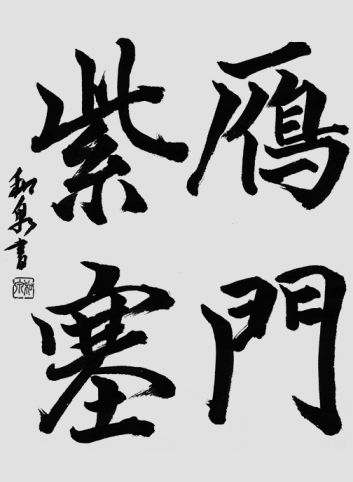 鴈門
紫塞
和泉書